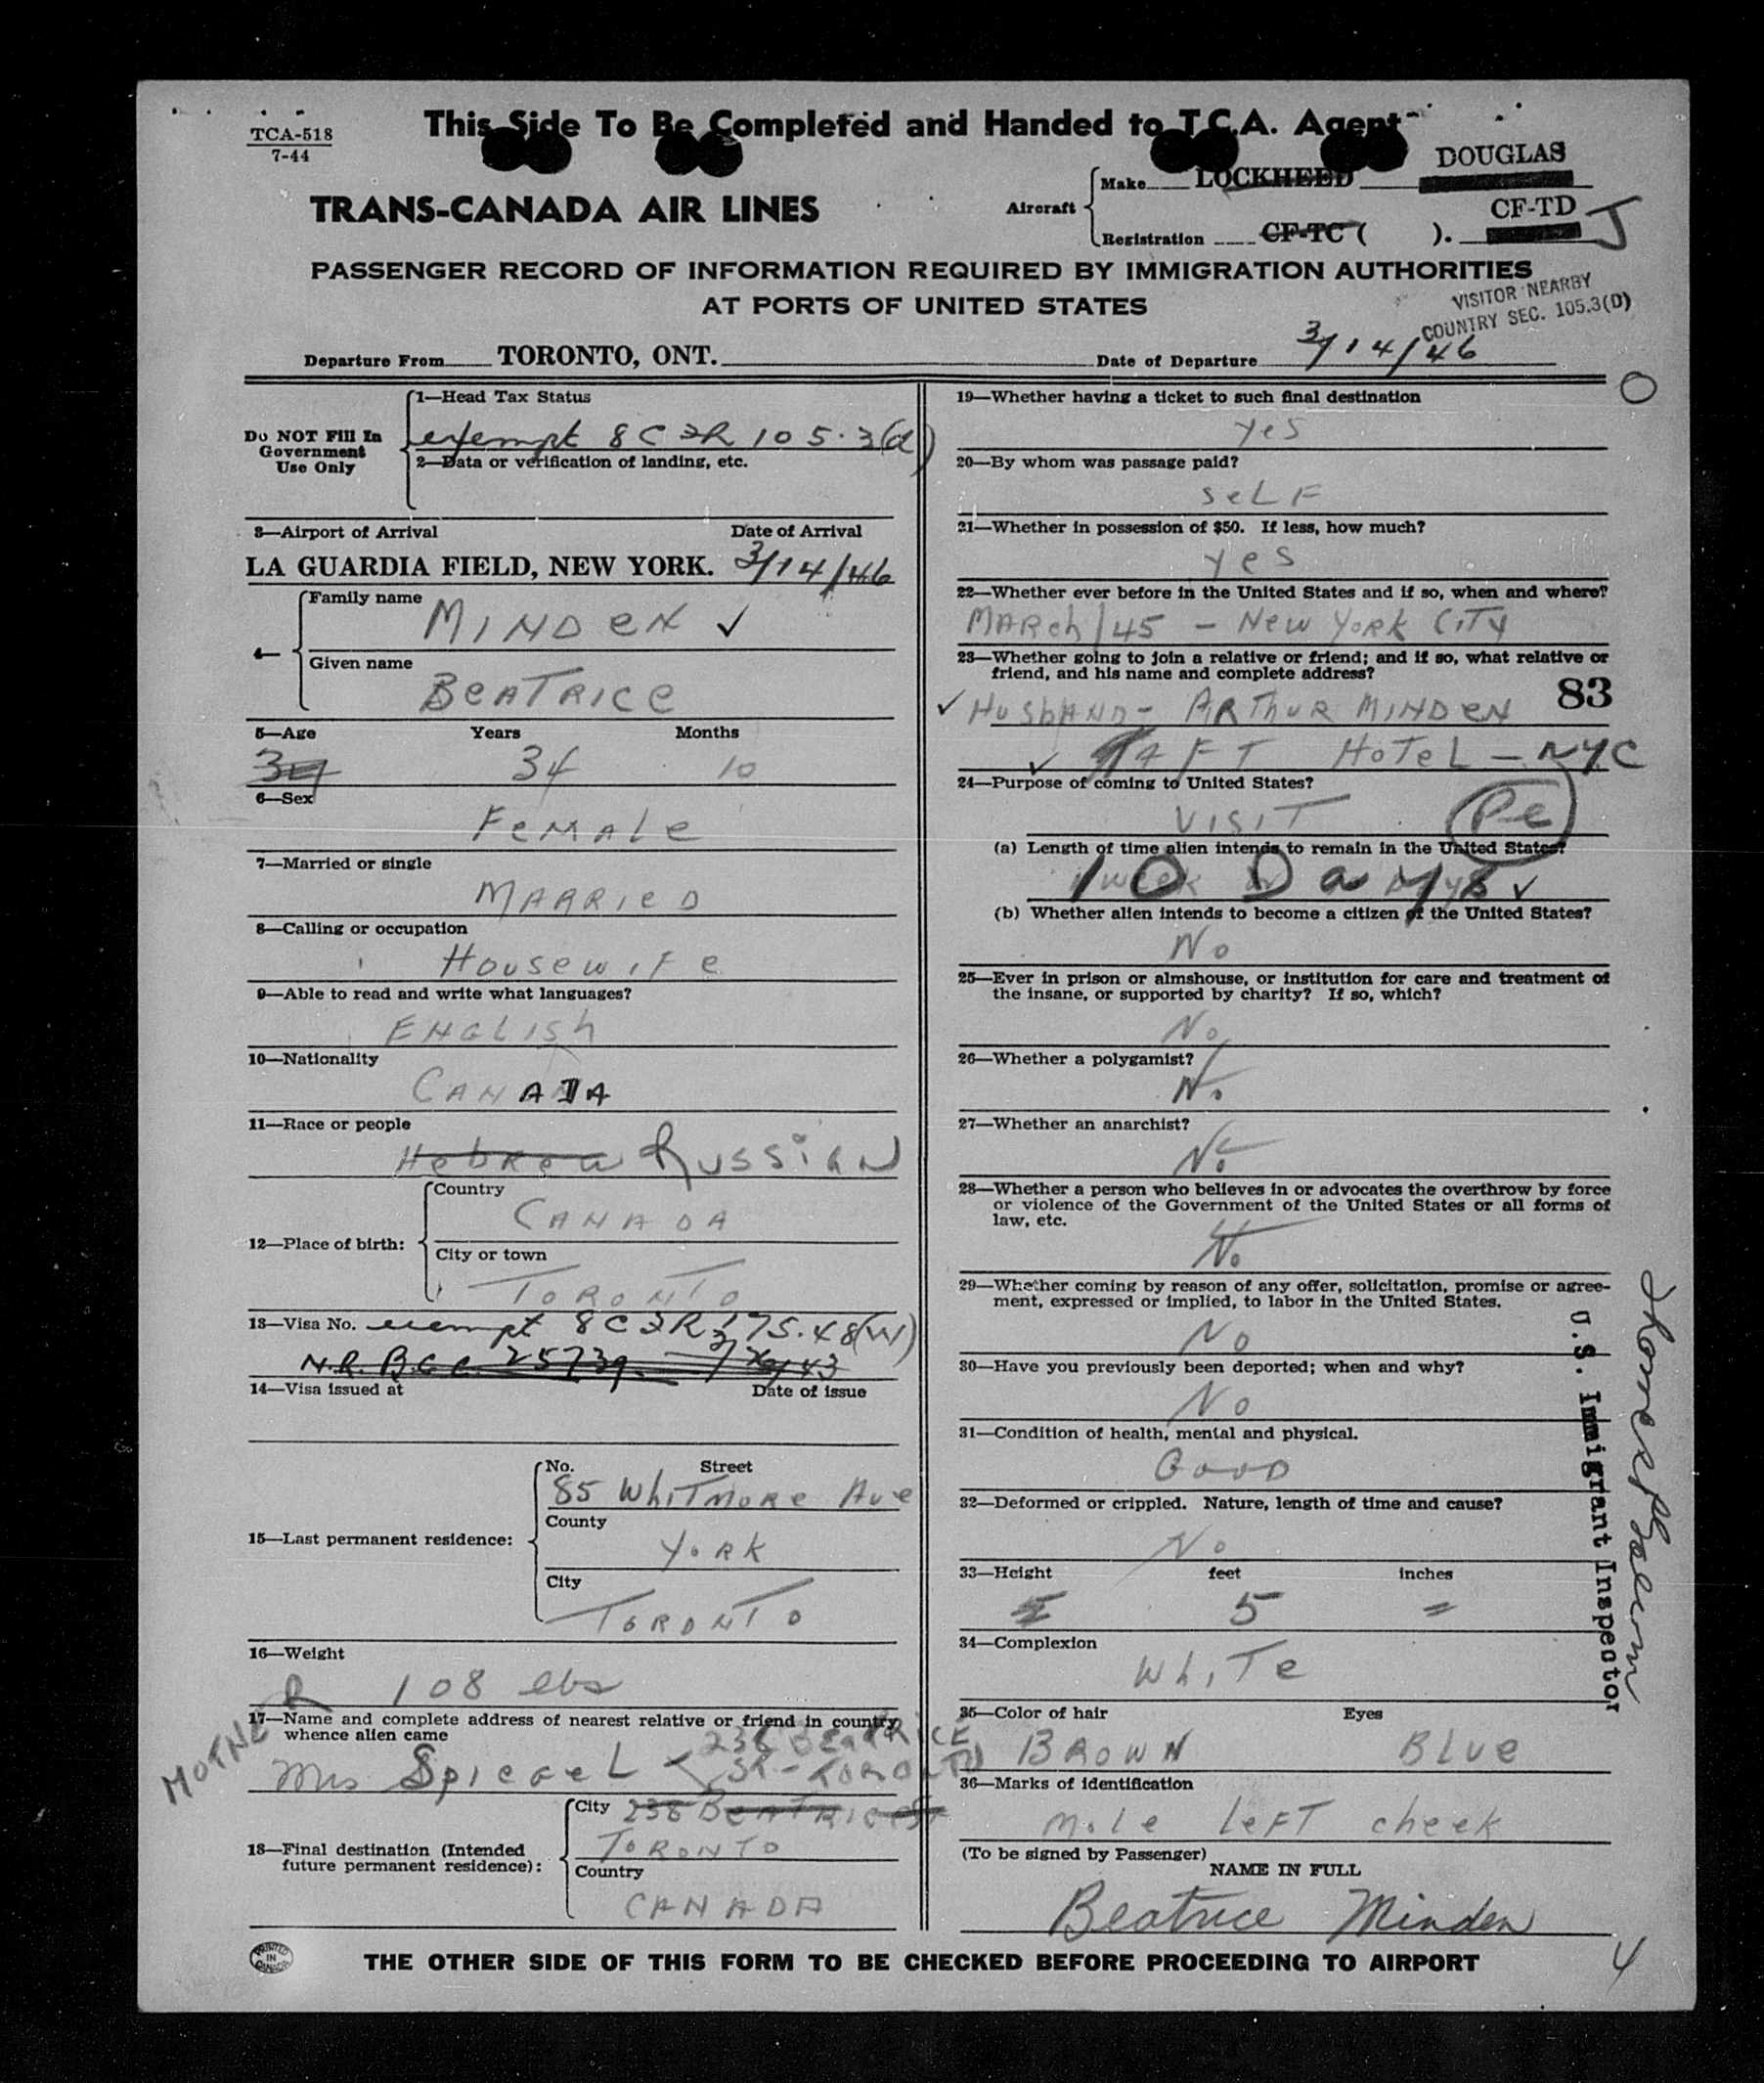 TCA-518
7-44
This Side To Be Completed and Handed to T.C.A. Agent
TRANS-CANADA AIR LINES
Aircraft
Make LOCKHEED DOUGLAS
Registration CF-TC ( ). CF-TD J
PASSENGER RECORD OF INFORMATION REQUIRED BY IMMIGRATION AUTHORITIES
AT PORTS OF UNITED STATES
VISITOR NEARBY
COUNTRY SEC. 105.3(D)
Departure From TORONTO, ONT. Date of Departure 3/14/46
Do NOT Fill In
Government
Use Only
1—Head Tax Status
exempt 8CFR 105.3(d)
2—Data or verification of landing, etc.
3—Airport of Arrival Date of Arrival
LA GUARDIA FIELD, NEW YORK. 3/14/46
4—
Family name
MINDEN ✓
Given name
BEATRICE
5—Age Years Months
34 34 10
6—Sex
FEMALE
7—Married or single
MARRIED
8—Calling or occupation
HOUSEWIFE
9—Able to read and write what languages?
ENGLISH
10—Nationality
CANADA
11—Race or people
Hebrew RUSSIAN
12—Place of birth:
Country
CANADA
City or town
TORONTO
13—Visa No. exempt 8CFR 175.48(W)
N.R.B.C.C. 25739
14—Visa issued at Date of issue
15—Last permanent residence:
No. Street
85 WhITMORE Ave
County
YORK
City
TORONTO
16—Weight
108 lbs
17—Name and complete address of nearest relative or friend in country
whence alien came
MOTHER
Mrs SpiegeL 238 BEATRICE
ST - TORONTO
18—Final destination (Intended
future permanent residence):
City 238 BEATRICE ST
TORONTO
Country
CANADA
19—Whether having a ticket to such final destination
yes
20—By whom was passage paid?
seLF
21—Whether in possession of $50. If less, how much?
yes
22—Whether ever before in the United States and if so, when and where?
MARch/45 - New York CITY
23—Whether going to join a relative or friend; and if so, what relative or
friend, and his name and complete address?
83
✓ HUSbAND - ARThUR MINDEN
✓ TAFT HOTeL - NYC
24—Purpose of coming to United States?
VISIT Pe
(a) Length of time alien intends to remain in the United States?
10 Days ✓
(b) Whether alien intends to become a citizen of the United States?
No
25—Ever in prison or almshouse, or institution for care and treatment of
the insane, or supported by charity? If so, which?
No
26—Whether a polygamist?
No
27—Whether an anarchist?
No
28—Whether a person who believes in or advocates the overthrow by force
or violence of the Government of the United States or all forms of
law, etc.
No
29—Whether coming by reason of any offer, solicitation, promise or agree-
ment, expressed or implied, to labor in the United States.
No
30—Have you previously been deported; when and why?
No
31—Condition of health, mental and physical.
Good
32—Deformed or crippled. Nature, length of time and cause?
No
33—Height feet inches
5 =
34—Complexion
WhiTe
35—Color of hair Eyes
BROWN BLue
36—Marks of identification
mole leFT cheek
(To be signed by Passenger)
NAME IN FULL
Beatrice Minden
U.S. Immigrant Inspector
PRINTED
IN
CANADA
THE OTHER SIDE OF THIS FORM TO BE CHECKED BEFORE PROCEEDING TO AIRPORT
4